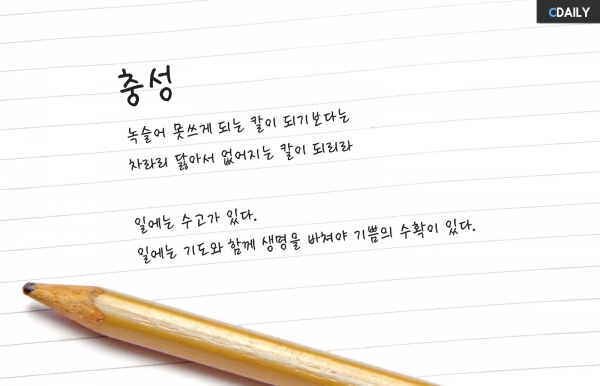 CDAILY
충성
녹슬어 못쓰게 되는 칼이 되기보다는
차라리 닳아서 없어지는 칼이 되리라
일에는 수고가 있다.
일에는 기도와 함께 생명을 바쳐야 기쁨의 수확이 있다.